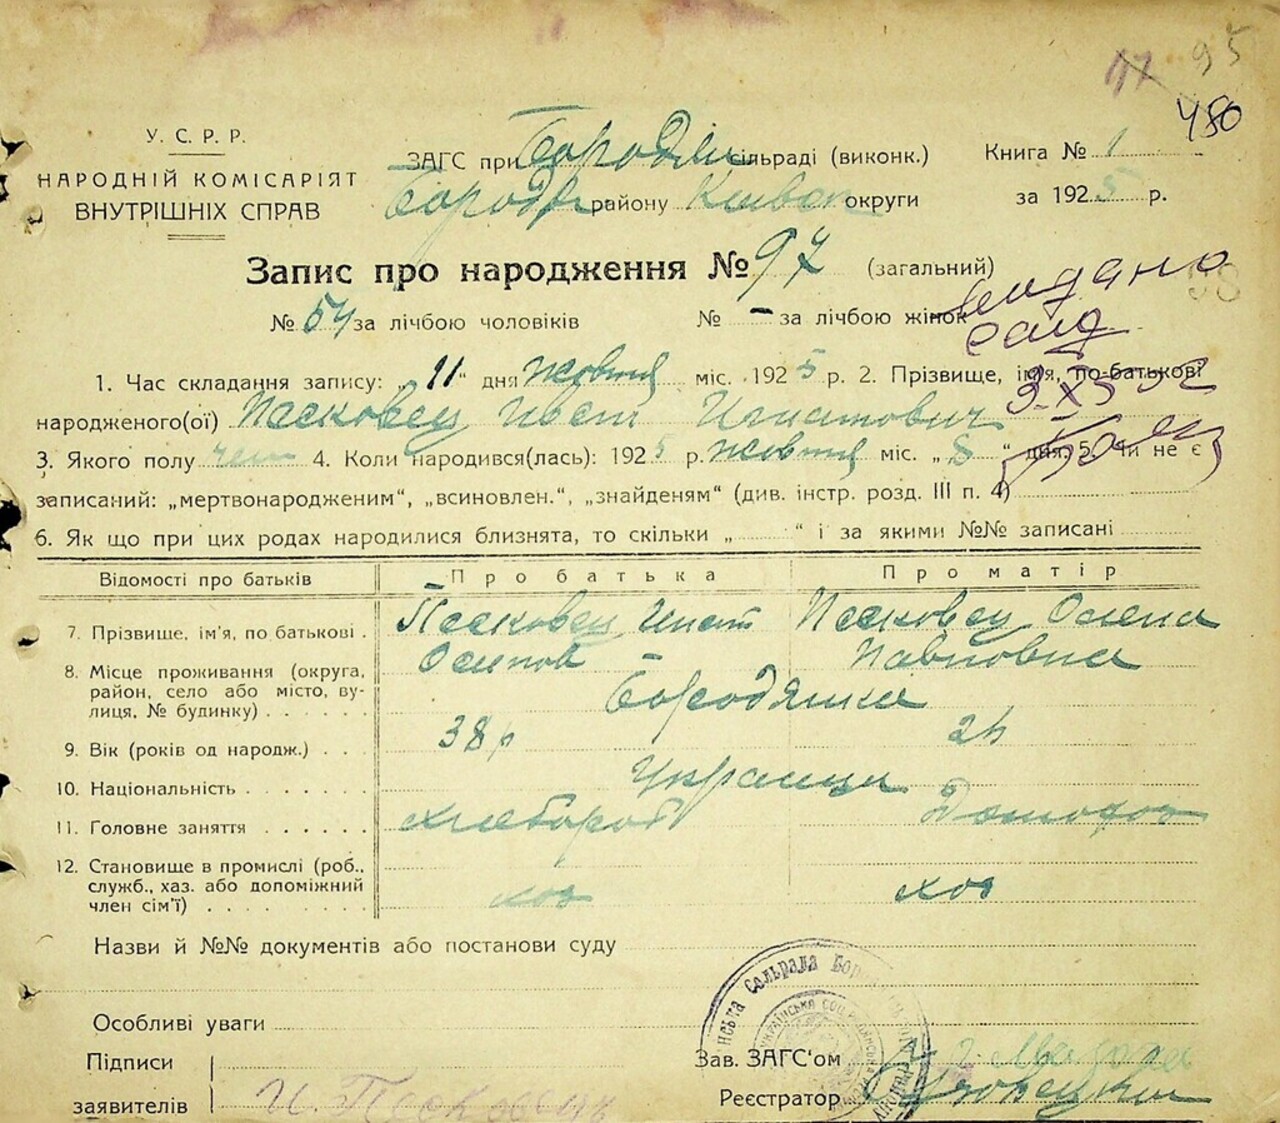 95
480
У. С. Р. Р.
НАРОДНІЙ КОМІСАРІЯТ
ВНУТРІШНІХ СПРАВ
ЗАГС при Бородян сільраді (виконк.) Книга № 1
Бород. району Київск округи за 1925 р.
Запис про народження № 97 (загальний)
№ 54 за лічбою чоловіків № – за лічбою жінок
видано
1. Час складання запису: „11“ дня жовтня міс. 1925 р. 2. Прізвище, ім'я, по-батькові
народженого(ої) Пасковец Иван Игнатович
3. Якого полу чол 4. Коли народився(лась): 1925 р. жовтня міс. „8“ дня. 5. Чи не є
записаний: „мертвонародженим“, „всиновлен.“, „знайденям“ (див. інстр. розд. III п. 4)
6. Як що при цих родах народилися близнята, то скільки „ “ і за якими №№ записані
Відомості про батьків Про батька Про матір
7. Прізвище, ім'я, по батькові . Пасковец Игнат Осипов Пасковец Олена Павловна
8. Місце проживання (округа, район, село або місто, вулиця, № будинку) . . . . . . Бородянка
9. Вік (років од народж.) . . . 38 р
10. Національність . . . . . . . Украинци
11. Головне заняття . . . . . . хлебороб Домохоз
12. Становище в промислі (роб., служб., хаз. або допоміжний член сім'ї) . . . . . . . . хоз хоз
Назви й №№ документів або постанови суду
Особливі уваги
Підписи
заявителів
И. Пасковець
Зав. ЗАГС'ом
Реєстратор